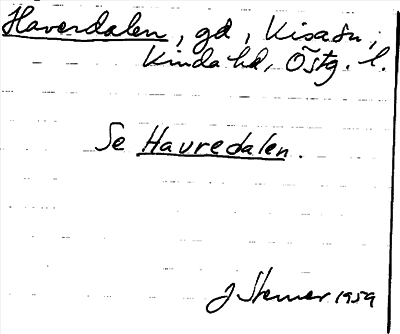 Haverdalen, gd, Kisa sn,
Kinda hd, Östg. l.
Se Havredalen.
J Stemer 1959